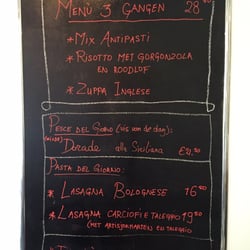 Menù 3 Gangen 28⁵⁰
* Mix Antipasti
* Risotto met gorgonzola
en roodlof
* Zuppa Inglese
Pesce del Giorno (vis van de dag):
Dorade alla Siciliana €21,50
Pasta del Giorno:
* Lasagna Bolognese 16⁵⁰
* Lasagna carciofi e taleggio 19⁵⁰
(met artisjokharten en taleggio)